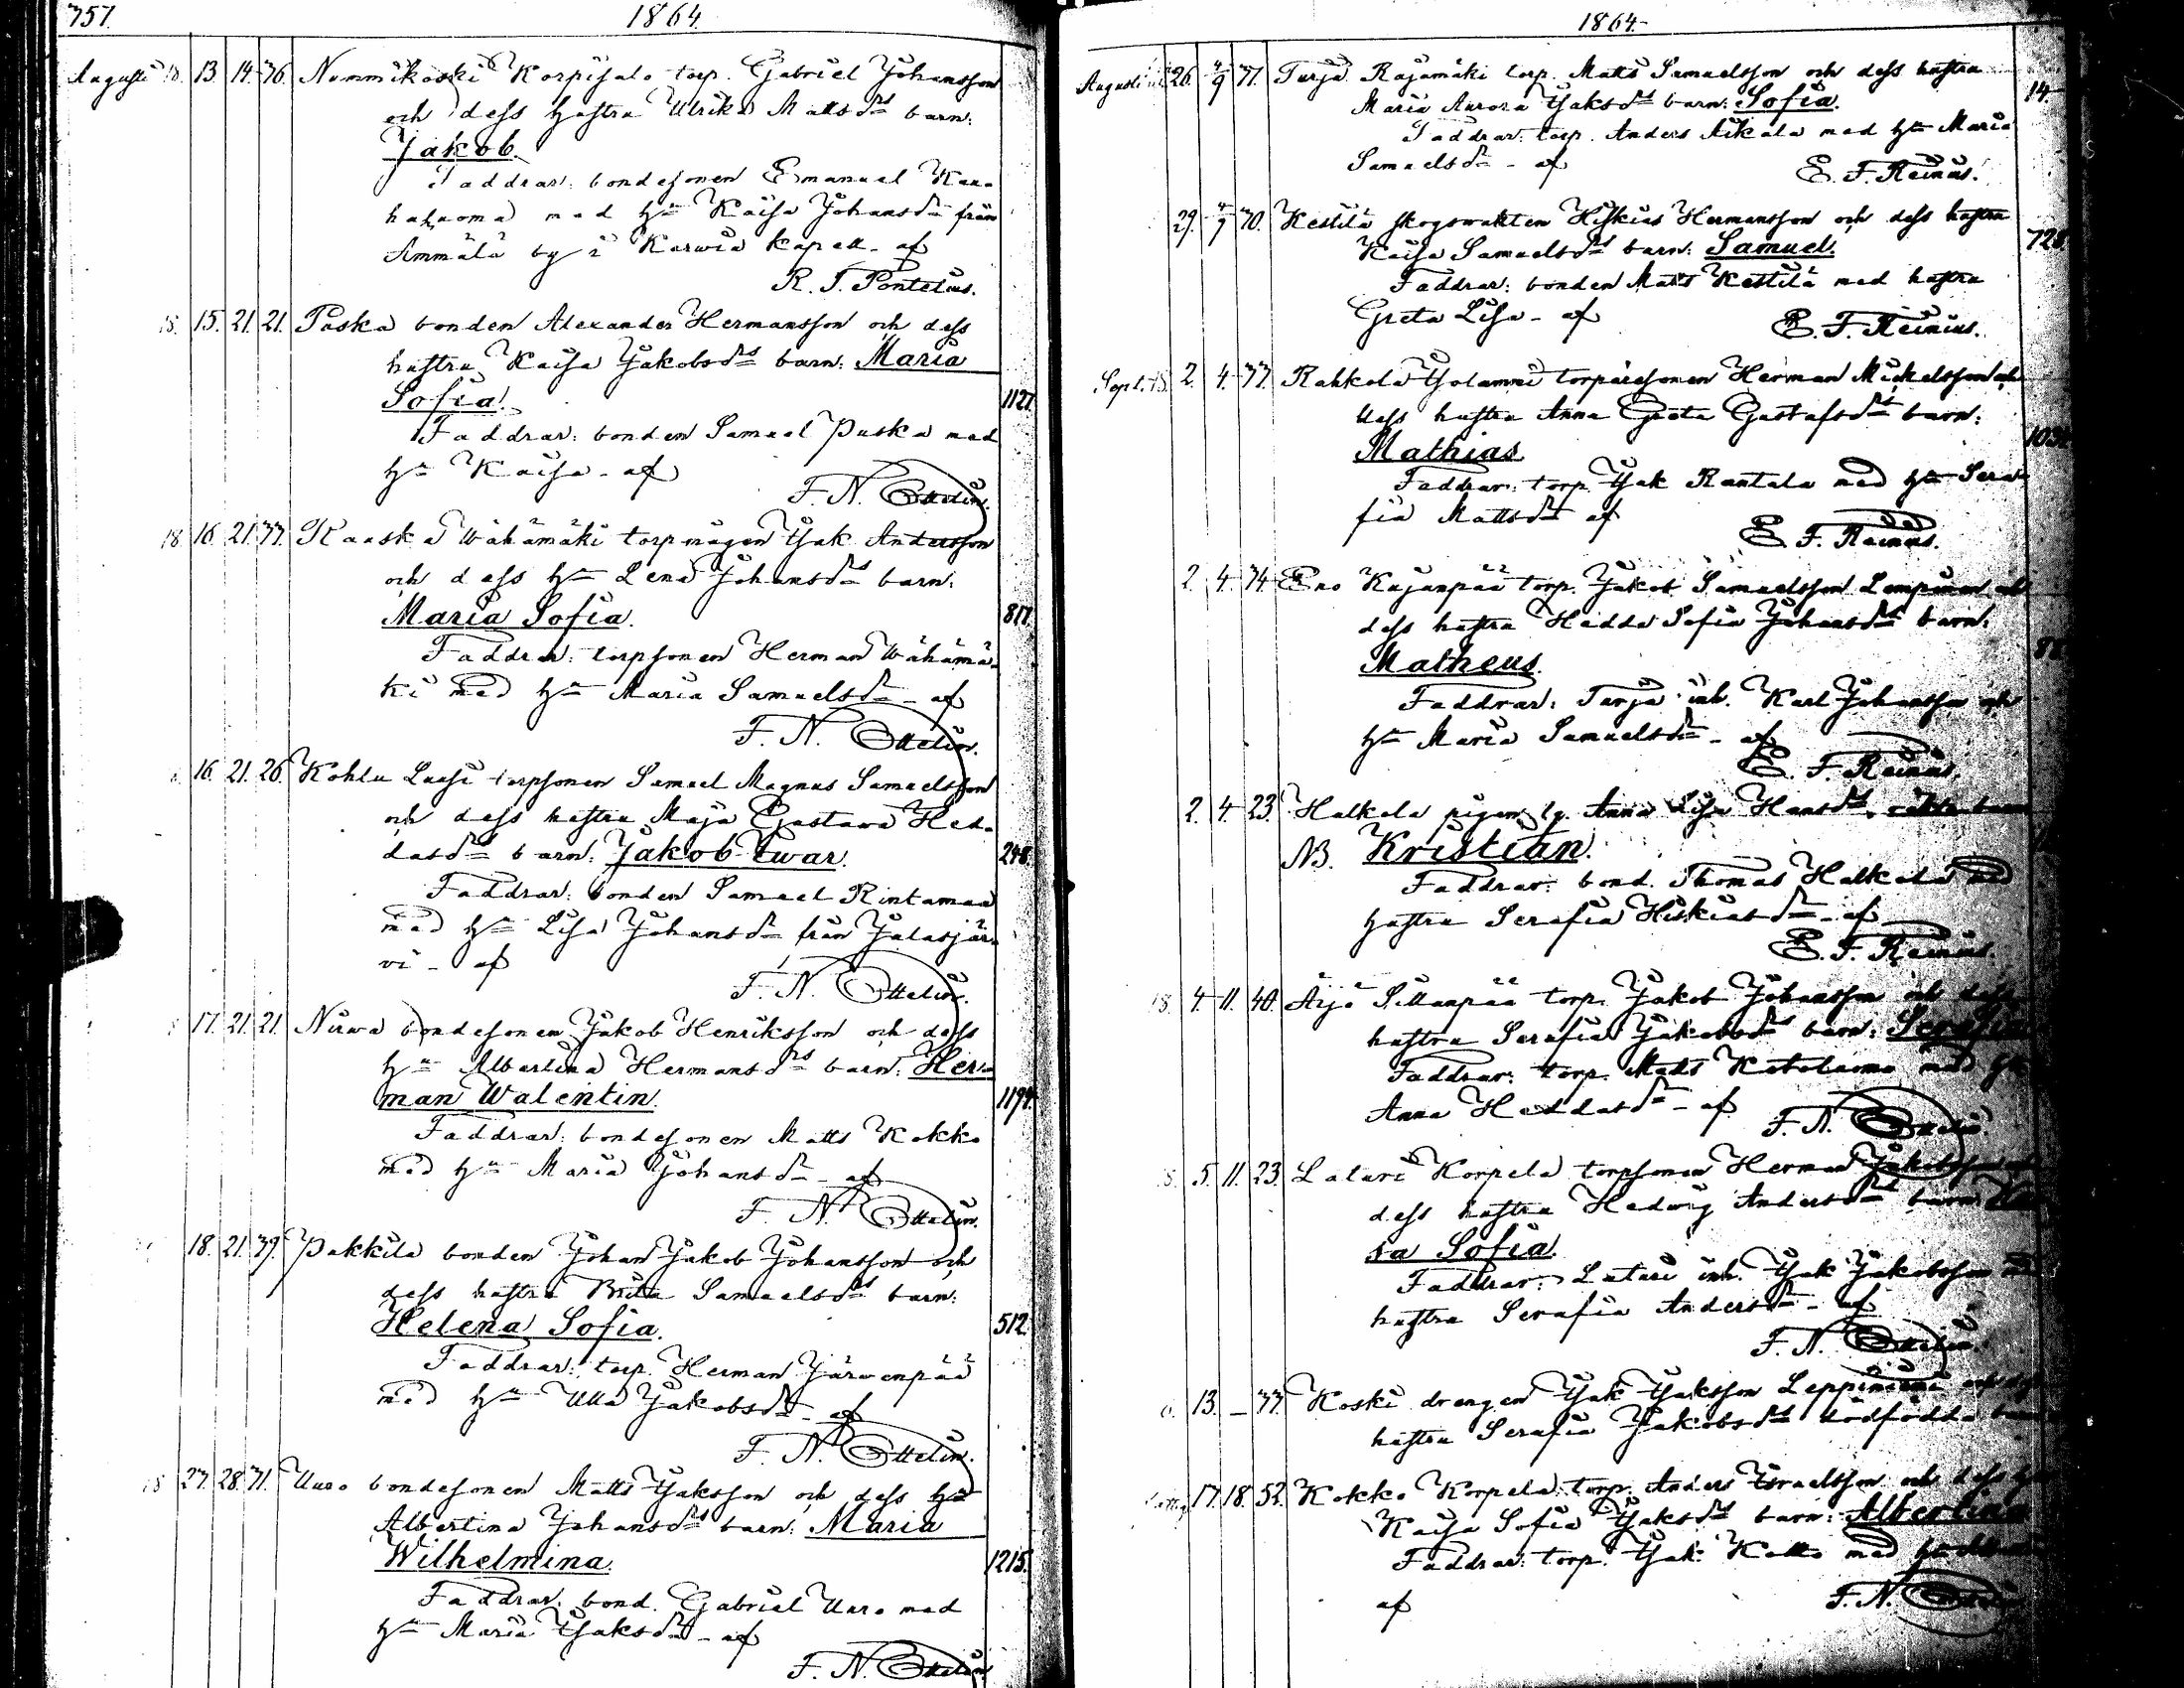 757.
1864.
Augusti 18. 13. 14. 76. Nummikoski Korpisalo torp. Gabriel Johansson
och dess hustru Ulrika Mattsdrs barn:
Jakob.
Faddrar: bondesonen Emanuel Kau-
haluoma med hu Kaisa Johansdr från
Ämmälä by i Karwia kapell - af
R. J. Pontelius.
18. 15. 21. 21. Paska bonden Alexander Hermansson och dess
hustru Kaisa Jakobsdrs barn: Maria
Sofia. 1127.
Faddrar: bonden Samuel Puska med
hu Kaisa - af
F. N. Ottelin.
18. 16. 21. 77. Raaska Wähämäki torpmågen Jak Andersson
och dess hu Lena Johansdrs barn:
Maria Sofia. 817.
Faddrar: torpsonen Herman Wähämä-
ki med hu Maria Samuelsdr - af
F. N. Ottelin.
16. 21. 26. Kohlu Luasi torpsonen Samuel Magnus Samuelsson
och dess hustru Maja Gustawa Hed-
dasdrs barn: Jakob Iwar. 248.
Faddrar: bonden Samuel Rintamaa
med hu Lisa Johansdr från Jalasjär-
vi - af
F. N. Ottelin.
17. 21. 21. Nirwa bondesonen Jakob Henriksson och dess
hu Albertina Hermansdrs barn: Her-
man Walentin. 1194.
Faddrar: bondesonen Matts Kokko
med hu Maria Johansdr - af
F. N. Ottelin.
18. 21. 39. Pakkila bonden Johan Jakob Johansson och
dess hustru Brita Samuelsdrs barn:
Helena Sofia. 512.
Faddrar: torp. Herman Järwenpää
med hu Ulla Jakobsdr - af
F. N. Ottelin.
18 27. 28. 71. Uuro bondesonen Matts Jaksson och dess hu
Albertina Johansdrs barn: Maria
Wilhelmina. 1215.
Faddrar: bond. Gabriel Uuro med
hu Maria Jaksdr - af
F. N. Ottelin
1864.
Augusti 26. 4/9 71. Turja Rajamäki torp. Matts Samuelsson och dess hustru
Maria Aurora Jaksdrs barn: Sofia. 14.
Faddrar: torp. Anders Aikala med hu Maria
Samuelsdr - af
E. F. Reinius.
29. 4/9 70. Kestilä skogswakten Hiskias Hermansson och dess hustru
Kaisa Samuelsdrs barn: Samuel. 728.
Faddrar: bonden Matts Kestilä med hustru
Greta Lisa - af
E. F. Reinius.
Sept. 18. 2. 4. 77. Rahkola Jolanmi torparesonen Herman Mickelsson och
dess hustru Anna Greta Gustafsdrs barn:
Mathias.
Faddrar: torp. Jak Rantala med hu Sera-
fia Mattsdr af
E. F. Reinius.
2. 4. 74. Eno Kujanpää torp. Jakob Samuelsson Lempinen och
dess hustru Hedda Sofia Johansdrs barn:
Matheus.
Faddrar: Turja inh. Karl Johansson och
hu Maria Samuelsdr - af
E. F. Reinius.
2. 4. 23. Halkola pigan lg. Anna Lisa Hansdrs oäkta barn
NB. Kristian.
Faddrar: bond. Thomas Halkola med
hustru Serafia Hiskiasdr - af
E. F. Reinius.
18. 4. 11. 40. Äijö Sillanpää torp. Jakob Johansson och dess
hustru Serafia Jakobsdrs barn: Serafia
Faddrar: torp. Matts Katoluoma med hu
Anna Heddasdr - af
F. N. Ottelin.
5. 11. 23. Laturi Korpela torpsonen Herman Jakobsson och
dess hustru Hedwig Andersdrs barn:
sa Sofia.
Faddrar: Laturi inh. Jak Jakobsson med
hustru Serafia Andersdr - af
F. N. Ottelin.
13. — 77. Koski drengen Jak Jaksson Leppiniemi och dess
hustru Serafia Jakobsdrs dödfödda barn
17. 18. 52. Kokko Korpela torp. Anders Israelsson och dess hu
Kaisa Sofia Jaksdrs barn: Albertina
Faddrar: torp. Jak Katko med hu
af
F. N. Ottelin